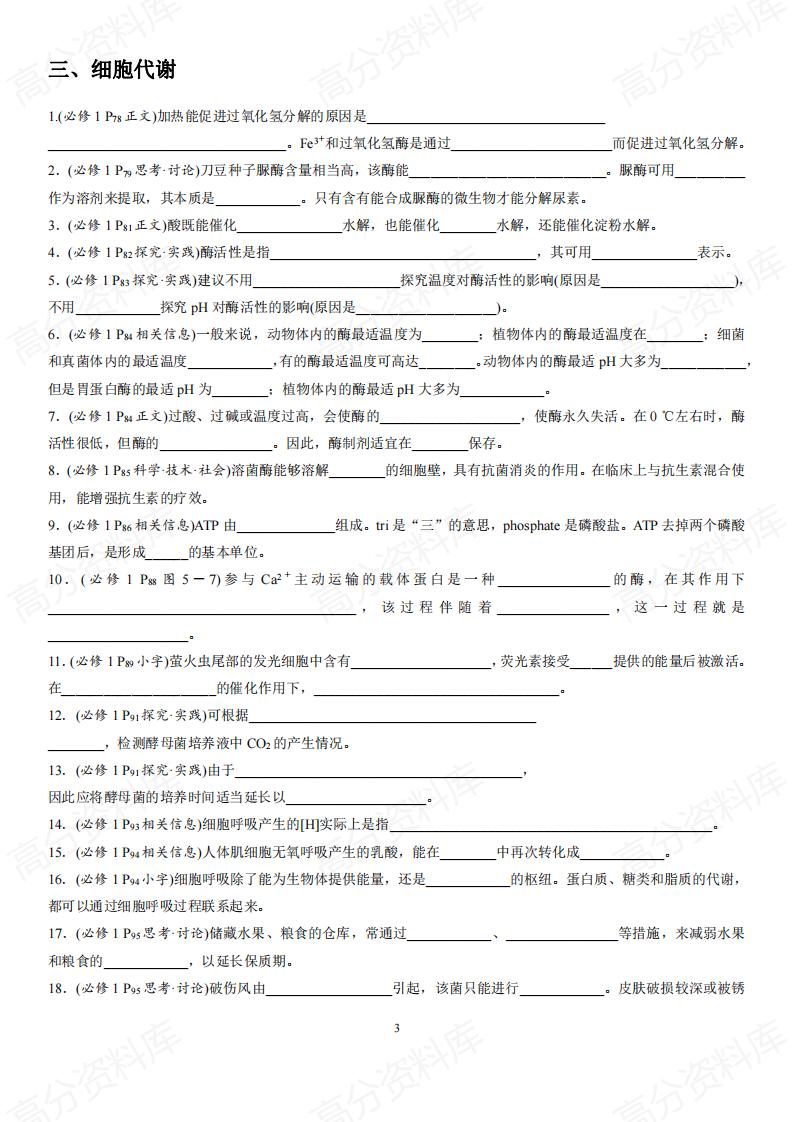 三、细胞代谢
1.(必修 1 P78 正文)加热能促进过氧化氢分解的原因是__________________________________
__________________________________。Fe³⁺和过氧化氢酶是通过_______________________而促进过氧化氢分解。
2．(必修 1 P79 思考·讨论)刀豆种子脲酶含量相当高，该酶能____________________________。脲酶可用__________
作为溶剂来提取，其本质是____________。只有含有能合成脲酶的微生物才能分解尿素。
3．(必修 1 P81 正文)酸既能催化_______________水解，也能催化________水解，还能催化淀粉水解。
4．(必修 1 P82 探究·实践)酶活性是指______________________________________，其可用_______________表示。
5．(必修 1 P83 探究·实践)建议不用_____________________探究温度对酶活性的影响(原因是___________________)，
不用____________探究 pH 对酶活性的影响(原因是____________________)。
6．(必修 1 P84 相关信息)一般来说，动物体内的酶最适温度为________；植物体内的酶最适温度在________；细菌
和真菌体内的最适温度____________，有的酶最适温度可高达________。动物体内的酶最适 pH 大多为____________，
但是胃蛋白酶的最适 pH 为________；植物体内的酶最适 pH 大多为____________。
7．(必修 1 P84 正文)过酸、过碱或温度过高，会使酶的____________________，使酶永久失活。在 0 ℃左右时，酶
活性很低，但酶的________________。因此，酶制剂适宜在________保存。
8．(必修 1 P85 科学·技术·社会)溶菌酶能够溶解________的细胞壁，具有抗菌消炎的作用。在临床上与抗生素混合使
用，能增强抗生素的疗效。
9．(必修 1 P86 相关信息)ATP 由______________组成。tri 是“三”的意思，phosphate 是磷酸盐。ATP 去掉两个磷酸
基团后，是形成______的基本单位。
10．(必修 1 P88 图 5－7)参与 Ca²⁺主动运输的载体蛋白是一种________________的酶，在其作用下
____________________________________________，该过程伴随着________________，这一过程就是
____________________。
11．(必修 1 P89 小字)萤火虫尾部的发光细胞中含有____________________，荧光素接受______提供的能量后被激活。
在______________________的催化作用下，___________________________________。
12．(必修 1 P91 探究·实践)可根据_________________________________________
________，检测酵母菌培养液中 CO₂ 的产生情况。
13．(必修 1 P91 探究·实践)由于_________________________________________，
因此应将酵母菌的培养时间适当延长以____________________。
14．(必修 1 P93 相关信息)细胞呼吸产生的[H]实际上是指______________________________________________。
15．(必修 1 P94 相关信息)人体肌细胞无氧呼吸产生的乳酸，能在________中再次转化成____________。
16．(必修 1 P94 小字)细胞呼吸除了能为生物体提供能量，还是____________的枢纽。蛋白质、糖类和脂质的代谢，
都可以通过细胞呼吸过程联系起来。
17．(必修 1 P95 思考·讨论)储藏水果、粮食的仓库，常通过____________、________________等措施，来减弱水果
和粮食的____________，以延长保质期。
18．(必修 1 P95 思考·讨论)破伤风由__________________引起，该菌只能进行____________。皮肤破损较深或被锈
3
高分资料库